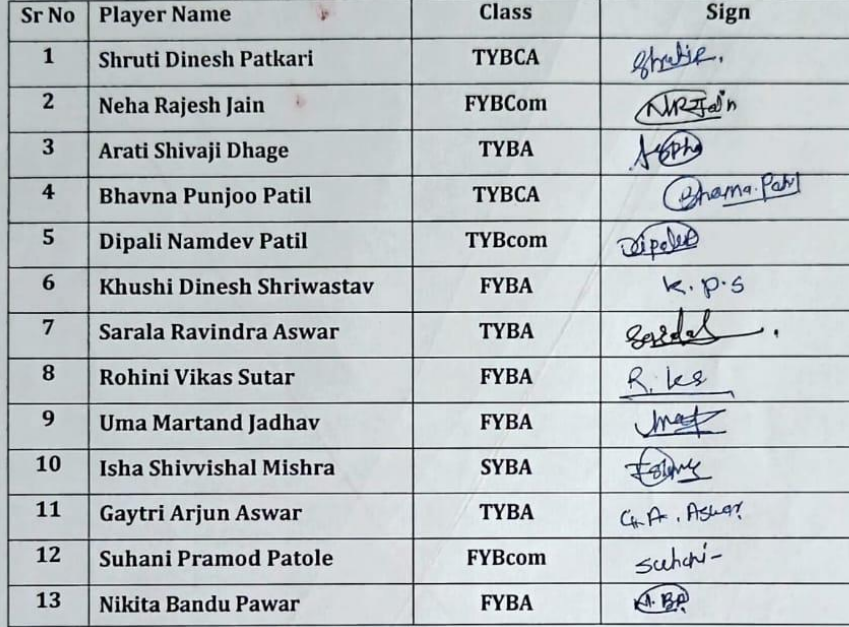 Sr No Player Name Class Sign
1 Shruti Dinesh Patkari TYBCA
2 Neha Rajesh Jain FYBCom NRJain
3 Arati Shivaji Dhage TYBA
4 Bhavna Punjoo Patil TYBCA
5 Dipali Namdev Patil TYBcom
6 Khushi Dinesh Shriwastav FYBA K.P.S
7 Sarala Ravindra Aswar TYBA
8 Rohini Vikas Sutar FYBA
9 Uma Martand Jadhav FYBA
10 Isha Shivvishal Mishra SYBA
11 Gaytri Arjun Aswar TYBA G.A. Aswar
12 Suhani Pramod Patole FYBcom
13 Nikita Bandu Pawar FYBA